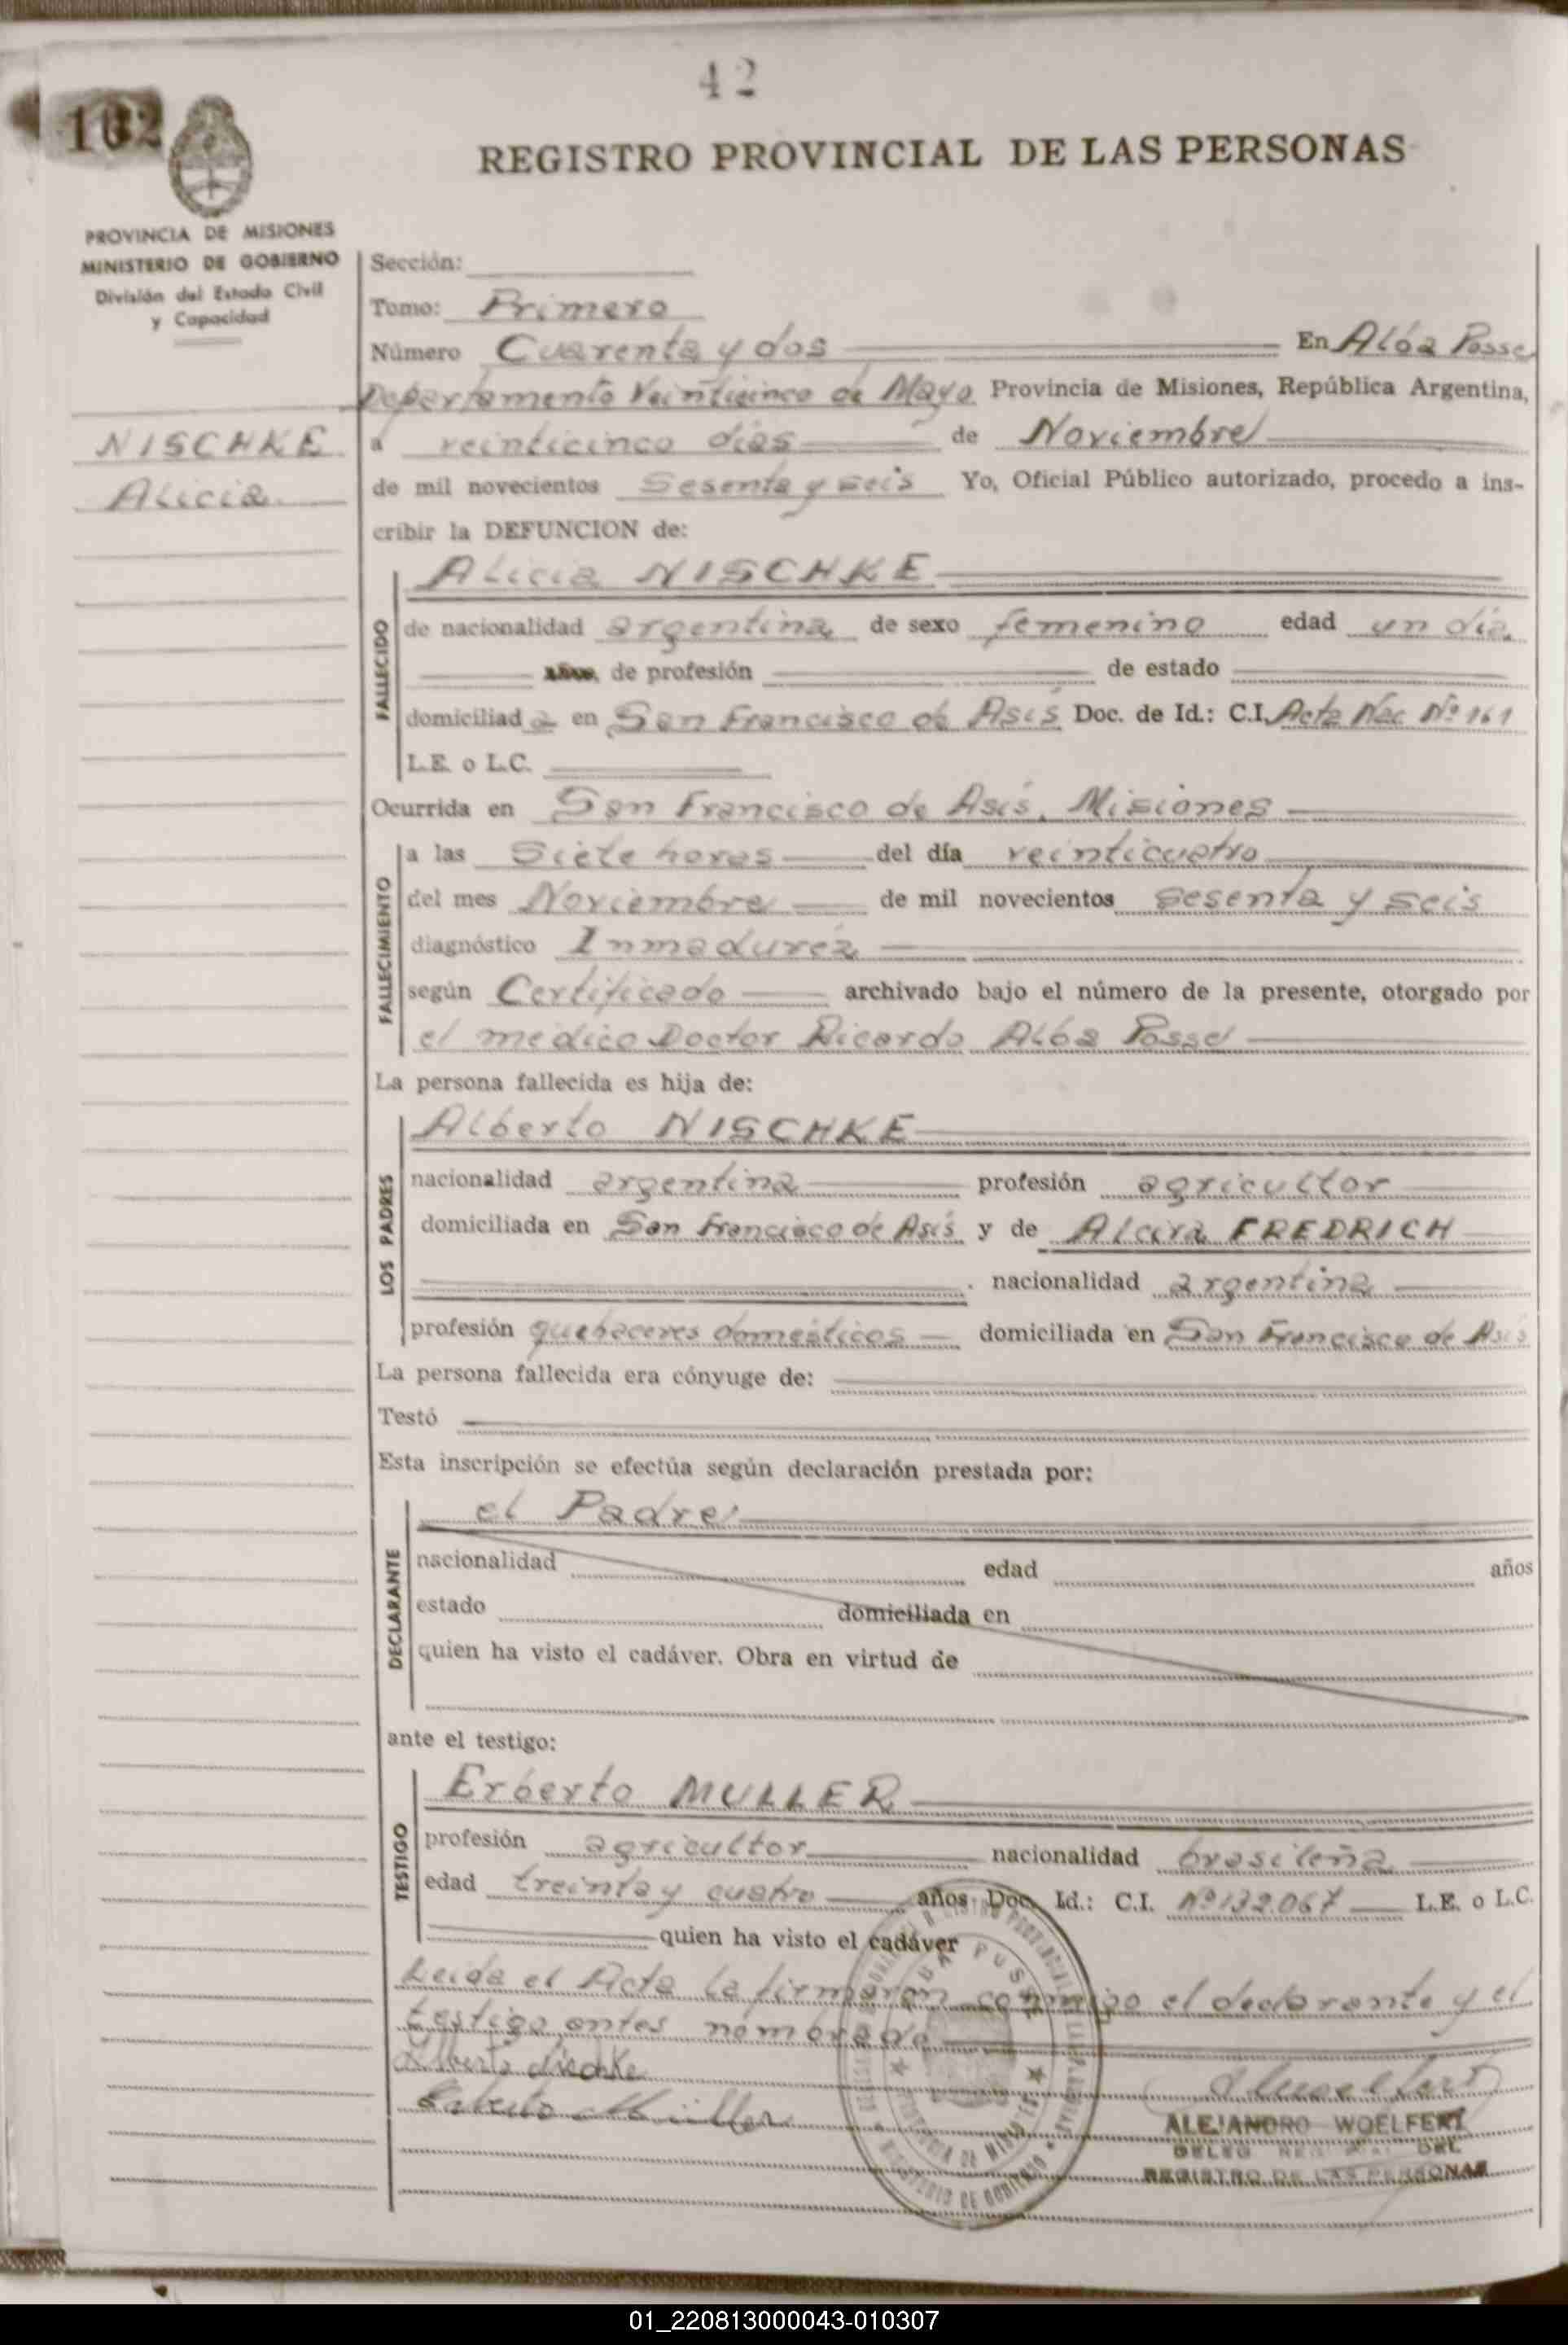 42
102
REGISTRO PROVINCIAL DE LAS PERSONAS
PROVINCIA DE MISIONES
MINISTERIO DE GOBIERNO
División del Estado Civil
y Capacidad
NISCHKE
Alicia
Sección:
Tomo: Primero
Número Cuarenta y dos En Alba Posse
Departamento Veinticinco de Mayo Provincia de Misiones, República Argentina,
a veinticinco días de Noviembre
de mil novecientos Sesenta y seis Yo, Oficial Público autorizado, procedo a ins-
cribir la DEFUNCION de:
FALLECIDO
Alicia NISCHKE
de nacionalidad argentina de sexo femenino edad un día
años, de profesión de estado
domiciliada en San Francisco de Asís Doc. de Id.: C.I. Acta Nac Nº 161
L.E. o L.C.
Ocurrida en San Francisco de Asís, Misiones
FALLECIMIENTO
a las Siete horas del día veinticuatro
del mes Noviembre de mil novecientos sesenta y seis
diagnóstico Inmadurez
según Certificado archivado bajo el número de la presente, otorgado por
el médico Doctor Ricardo Alba Posse
La persona fallecida es hija de:
LOS PADRES
Alberto NISCHKE
nacionalidad argentina profesión agricultor
domiciliada en San Francisco de Asís y de Alcira FREDRICH
nacionalidad argentina
profesión quehaceres domésticos domiciliada en San Francisco de Asís
La persona fallecida era cónyuge de:
Testó
Esta inscripción se efectúa según declaración prestada por:
DECLARANTE
el Padre
nacionalidad edad años
estado domiciliada en
quien ha visto el cadáver. Obra en virtud de
ante el testigo:
TESTIGO
Erberto MULLER
profesión agricultor nacionalidad brasileña
edad treinta y cuatro años Doc. Id.: C.I. Nº 132.067 L.E. o L.C.
quien ha visto el cadáver
Leída el Acta la firmaron conmigo el declarante y el
testigo antes nombrado
Alberto Nischke
Erberto Müller
ALEJANDRO WOELFERT
DEL
REGISTRO DE LAS PERSONAS
01_220813000043-010307